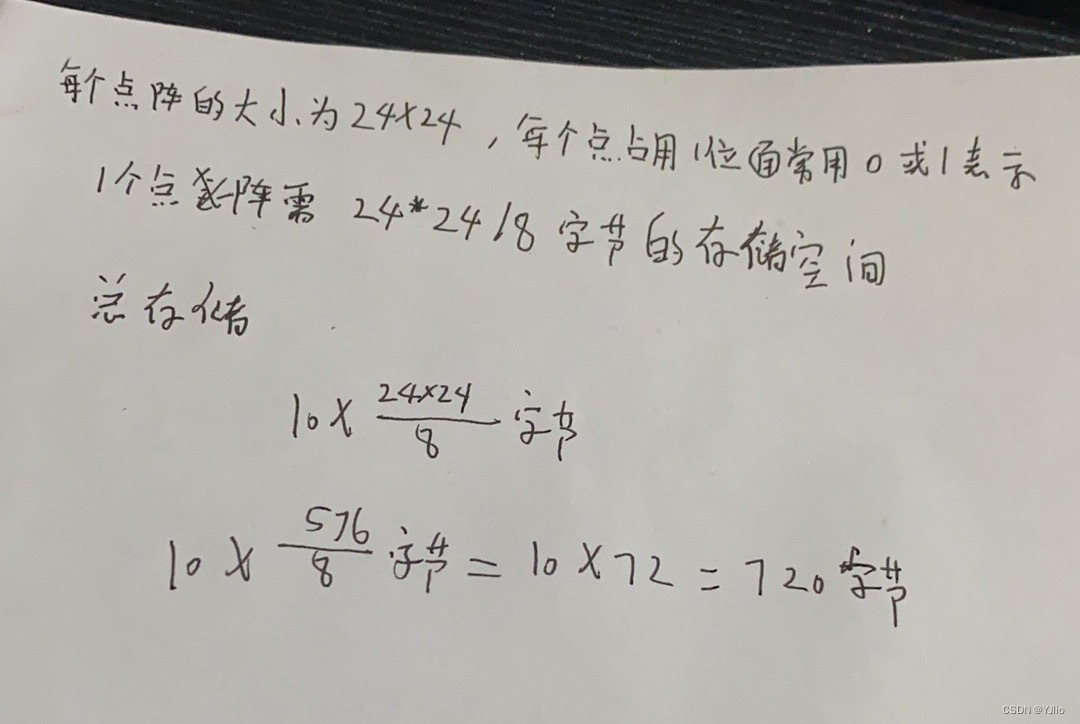 每个点阵的大小为24×24，每个点占用1位通常用0或1表示
1个点阵需 24*24/8 字节的存储空间
总存储
10× 24×24/8 字节
10× 576/8 字节=10×72=720字节
CSDN @YJllo